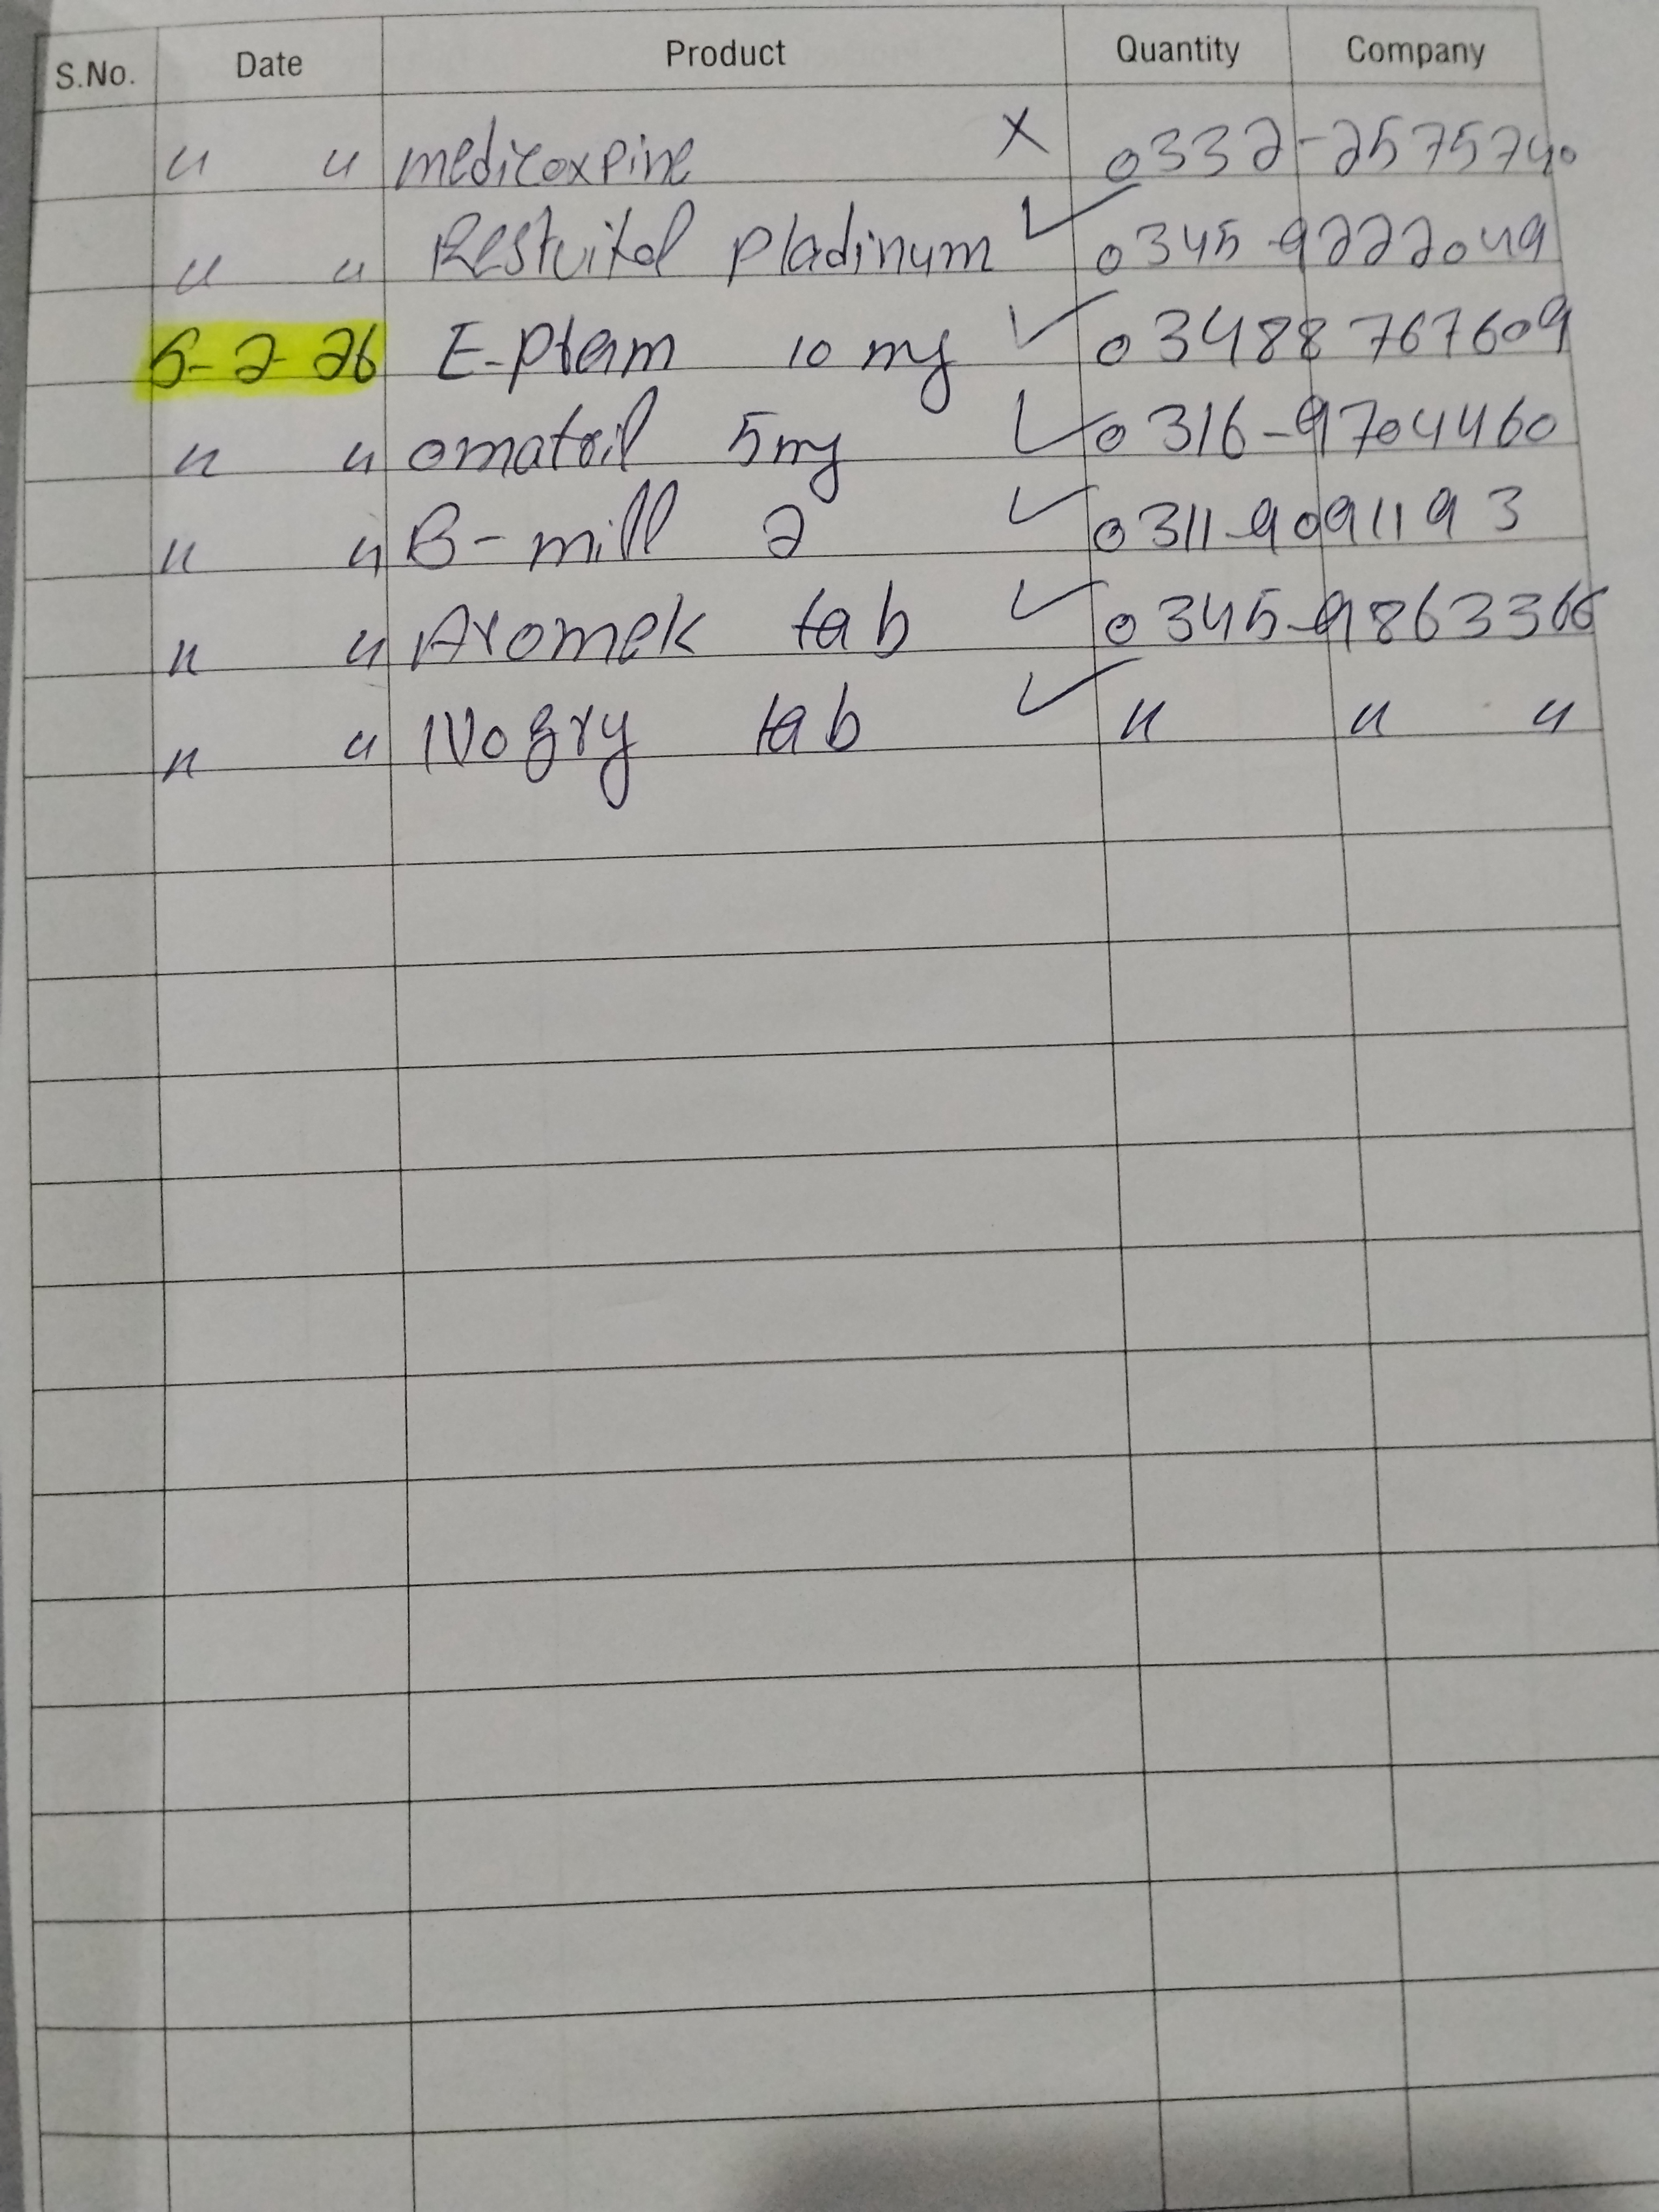 S.No. Date Product Quantity Company
" " medicoxpine X 0332-2575740
" " Restvital pladinum ✓ 0345-9222049
5-2-26 E-ptam 10 mg ✓ 03488767609
" " omatril 5mg ✓ 0316-9704460
" " B-mill 2 ✓ 0311-9091193
" " Aromek tab ✓ 0345-9863366
" " tab ✓ " " "